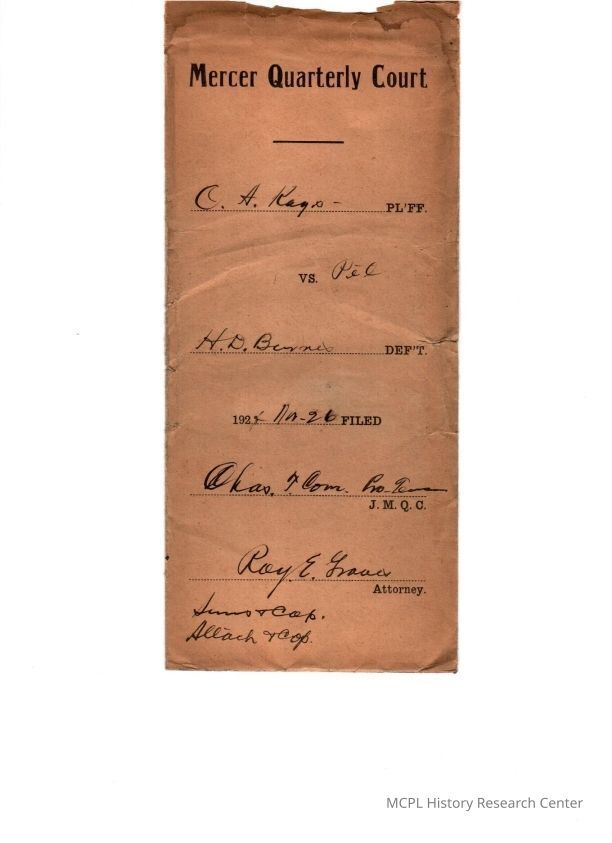 Mercer Quarterly Court
C. A. Kays - PL'FF.
VS. Pet
H. D. Burnes DEF'T.
192 Nov-26 FILED
Chas. Corn. Pro-Tem
J. M. Q. C.
Roy. E. Graves
Attorney.
Sums & Cop.
Attach & Cop.
MCPL History Research Center